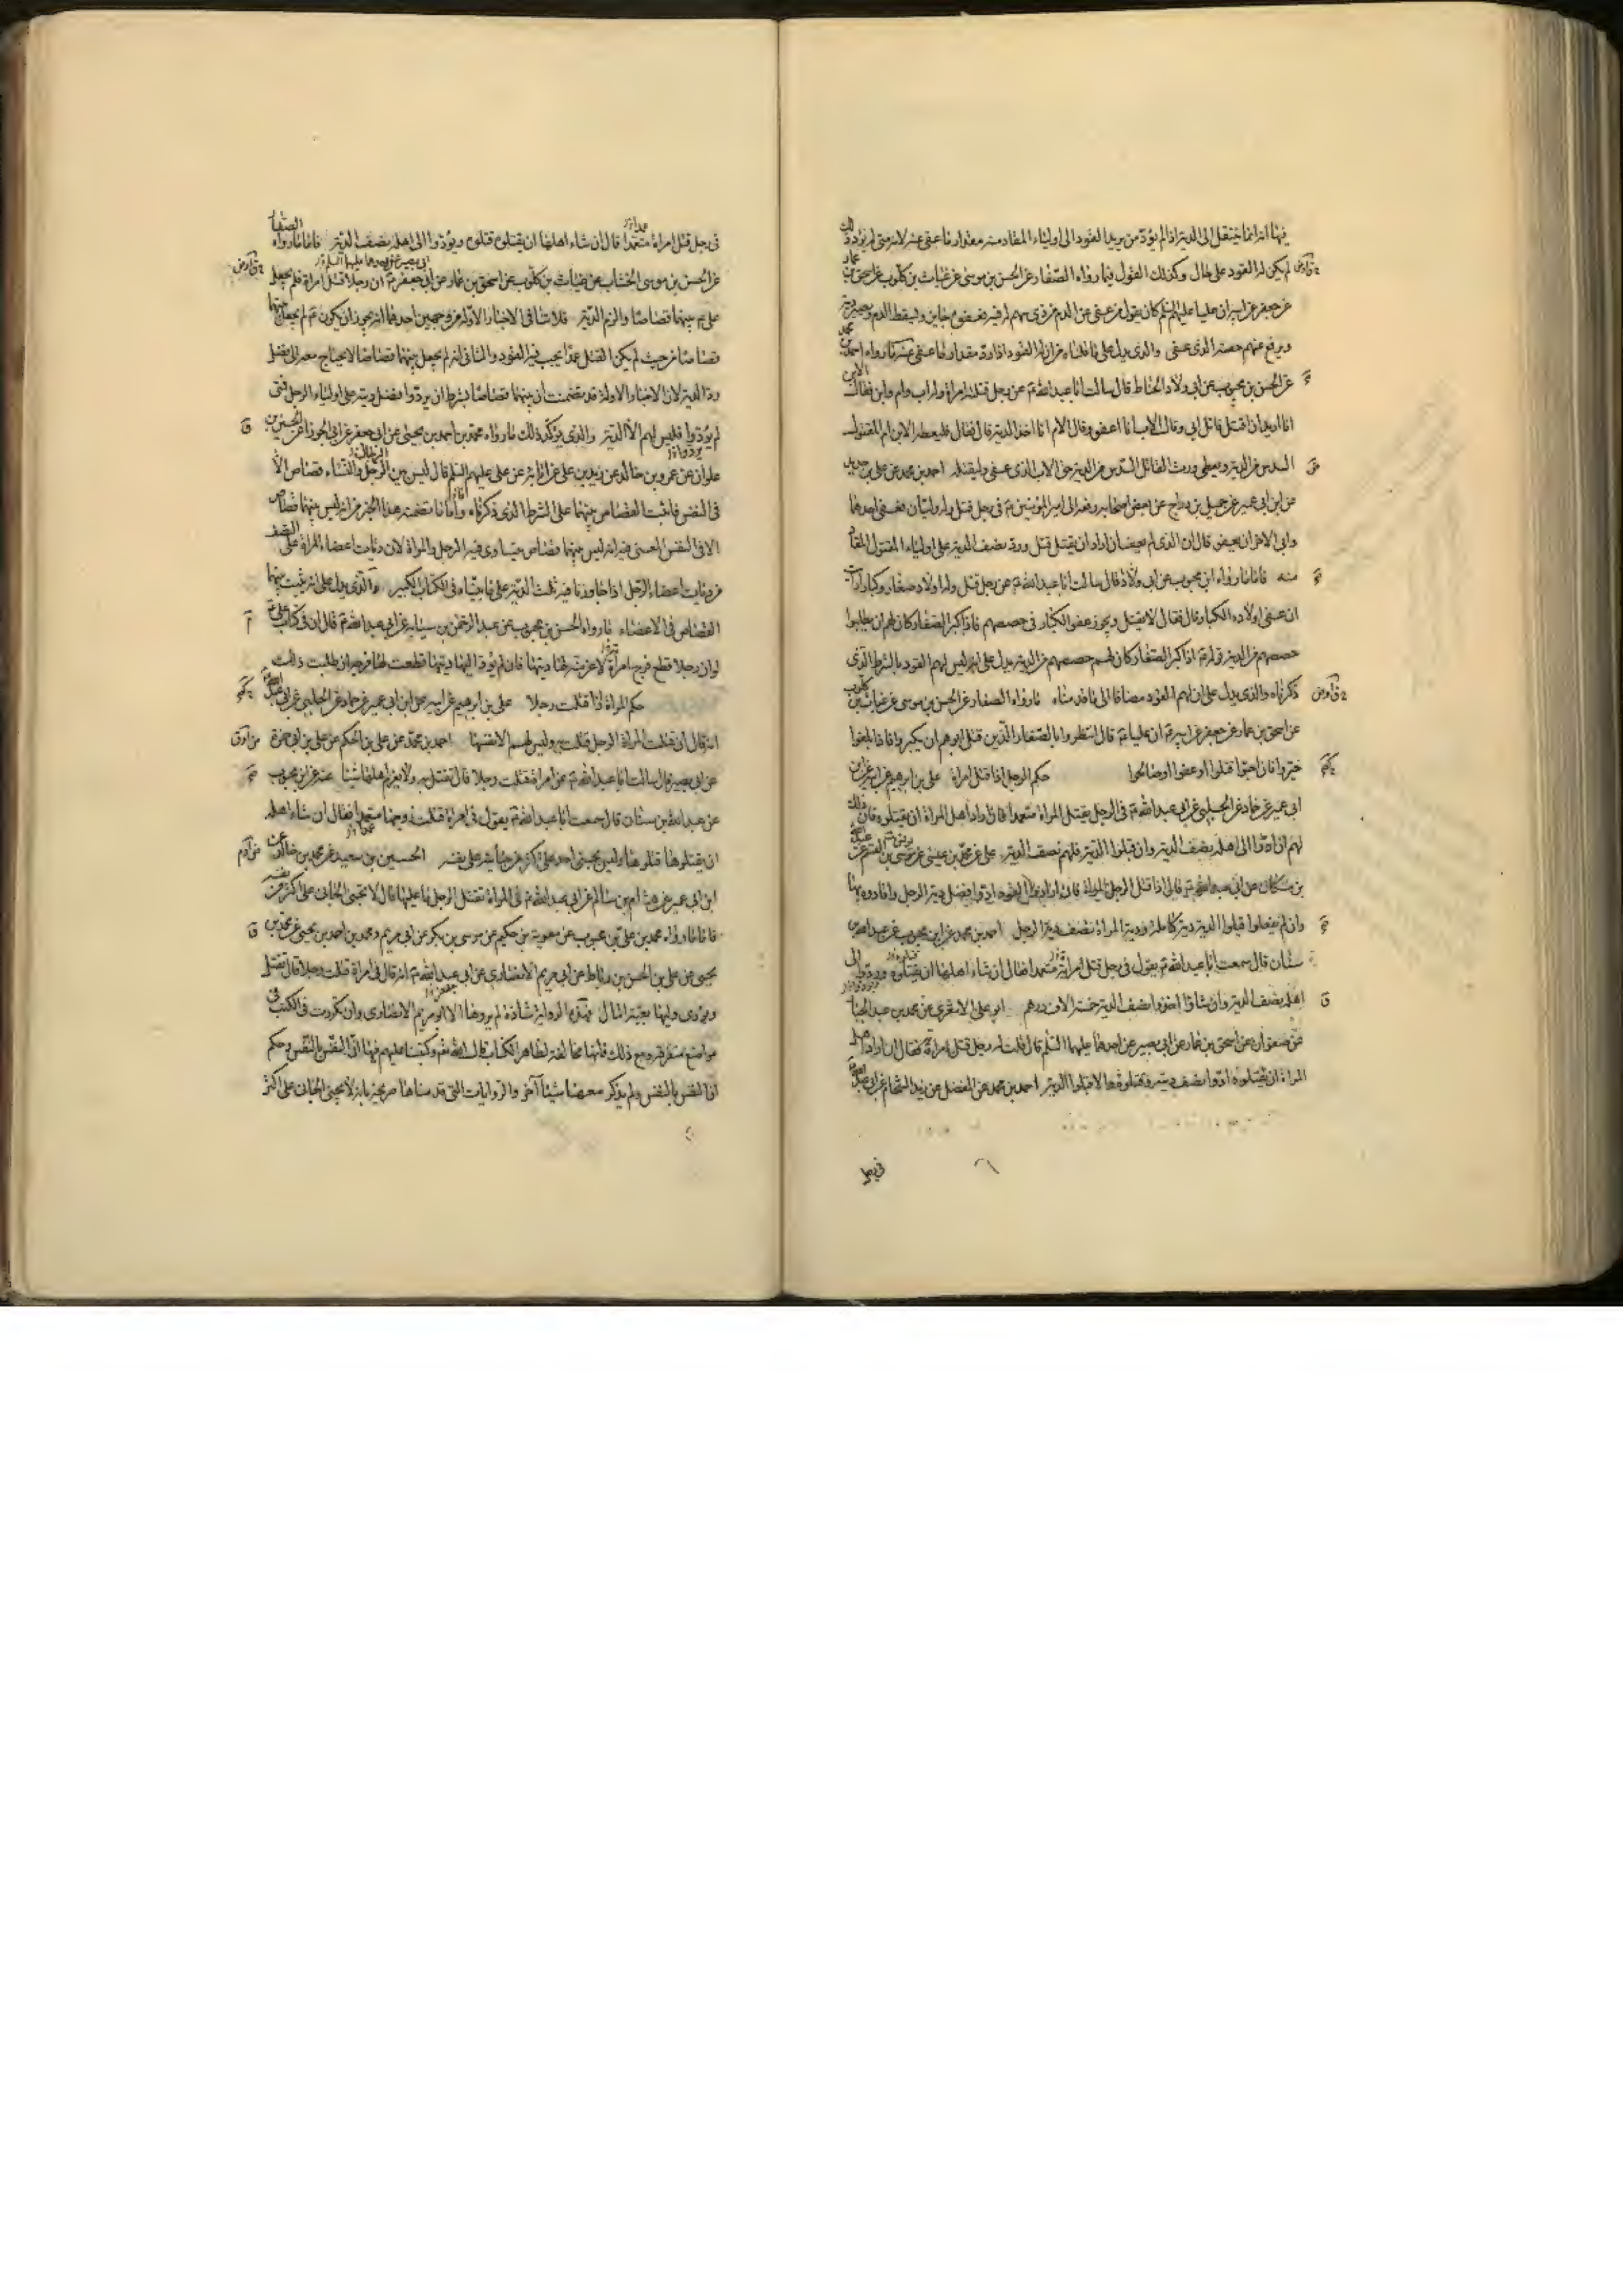 فيها انه انما ينتقل الى الدية اذا لم يؤد من يريد القود الى اولياء المقاد منه مقدار ما عفى عنه لانه متى لم يؤد ذلك
لم يكن له القود على حال وكذلك القول فيما رواه الصفار عن الحسن بن موسى عن غياث بن كلوب عن اسحق بن عمار
عن جعفر عن ابيه ان عليا عليهم السلم كان يقول من عفى عن الدم من ذى سهم له فيه فعفوه جايز وليسقط الدم وتصير دية
ويرفع عنهم حصة الذى عفى والذى يدل على ما قلناه من ان له القود اذا رد مقدار ما عفى عنه ما رواه احمد بن محمد
عن الحسن بن محبوب عن ابى ولاد الحناط قال سالت ابا عبد الله ع عن رجل قتل وله امراة واب وام وابن فقال الابن
انا اريد ان اقتل قاتل ابى وقال الاب انا اعفو وقال الام انا اخذ الدية قال فقال فليعط الابن ام المقتول
السدس من الدية ويعطى ورثة القاتل السدس من الدية حق الاب الذى عفى وليقتله احمد بن محمد عن على بن حديد
عن ابن ابى عمير عن جميل بن دراج عن بعض اصحابه رفعه الى امير المؤمنين ع فى رجل قتل وله وليان فعفى احدهما
وابى الاخر ان يعفو قال ان الذى لم يعف ان اراد ان يقتل قتل ورد نصف الدية على اولياء المقتول المقاد
منه فاما ما رواه ابن محبوب عن ابى ولاد قال سالت ابا عبد الله ع عن رجل قتل وله اولاد صغار وكبار ارايت
ان عفى اولاده الكبار قال فقال لا يقتل ويجوز عفو الكبار فى حصصهم فاذا كبر الصغار كان لهم ان يطلبوا
حصصهم من الدية قوله ع اذا كبر الصغار كان لهم حصصهم من الدية يدل على انه ليس لهم القود بالشرط الذى
ذكرناه والذى يدل على ان لهم القود مضافا الى ما قدمناه ما رواه الصفار عن الحسن بن موسى عن غياث بن كلوب
عن اسحق بن عمار عن جعفر عن ابيه ع ان عليا ع قال انتظروا بالصغار الذين قتل ابوهم ان يكبروا فاذا بلغوا
خيروا فان احبوا قتلوا او عفوا او صالحوا حكم الرجل اذا قتل امراة على بن ابرهيم عن ابيه عن ابن
ابى عمير عن حماد عن الحلبى عن ابى عبد الله ع فى الرجل يقتل المراة متعمدا فاراد اهل المراة ان يقتلوه قال ذلك
لهم اذا ادوا الى اهله نصف الدية وان قبلوا الدية فلهم نصف الدية على عن محمد بن عيسى عن يونس عن عبد الله
بن مسكان عن ابى عبد الله ع قال اذا قتل الرجل المراة فان ارادوا القود ادوا فضل دية الرجل واقادوه بها
وان لم يفعلوا قبلوا الدية دية كاملة ودية المراة نصف دية الرجل احمد بن محمد عن ابن محبوب عن عبد الله بن
سنان قال سمعت ابا عبد الله ع يقول فى رجل قتل امراته متعمدا فقال ان شاء اهلها ان يقتلوه ويردوا الى
اهله نصف الدية وان شاؤا اخذوا نصف الدية خمسة الاف درهم ابو على الاشعرى عن محمد بن عبد الجبار
عن صفوان عن اسحق بن عمار عن ابى بصير عن احدهما عليهما السلم قال قلت له رجل قتل امراة فقال ان اراد اهل
المراة ان يقتلوه ادوا نصف ديته وقتلوه والا قبلوا الدية احمد بن محمد عن المفضل عن زيد الشحام عن ابى عبد الله ع
فى رجل
فى رجل قتل امراة متعمدا قال ان شاء اهلها ان يقتلوه قتلوه ويؤدوا الى اهله نصف الدية فاما ما رواه الصفار
عن الحسن بن موسى الخشاب عن غياث بن كلوب عن اسحق بن عمار عن ابى جعفر ع ان رجلا قتل امراة فلم يجعل
على ع بينهما قصاصا والزمه الدية فلا ينافى الاخبار الاولة من وجهين احدهما انه يجوز ان يكون ع لم يجعل بينهما
قصاصا من حيث لم يكن القتل عمدا يجب فيه القود والثانى انه لم يجعل بينهما قصاصا لا يحتاج معه الى فضل
رد الدية لان الاخبار الاولة قد تضمنت ان بينهما قصاصا بشرط ان يردوا فضل ديته على اولياء الرجل فمتى
لم يؤدوا فليس لهم الا الدية والذى يؤكد ذلك ما رواه محمد بن احمد بن يحيى عن ابى جعفر عن ابى الجوزا عن الحسين بن
علوان عن عمرو بن خالد عن زيد بن على عن ابائه عن على عليهم السلم قال ليس بين الرجال والنساء قصاص الا
فى النفس فاثبت القصاص بينهما على الشرط الذى ذكرناه واما ما تضمنه هذا الخبر من انه ليس بينهما قصاص
الا فى النفس المعنى فيه انه ليس بينهما قصاص يتساوى فيه الرجل والمراة لان ديات اعضاء المراة على النصف
من ديات اعضاء الرجل اذا جاوز ما فيه ثلث الدية على ما بيناه فى الكتاب الكبير والذى يدل على انه يثبت بينهما
القصاص فى الاعضاء ما رواه الحسن بن محبوب عن عبد الرحمن بن سيابه عن ابى عبد الله ع قال ان فى كتاب على ع
لو ان رجلا قطع فرج امراة لاغرمته لها ديتها فان لم يؤد اليها ديتها قطعت لها فرجه ان طلبت ذلك
حكم المراة اذا قتلت رجلا على بن ابرهيم عن ابيه عن ابن ابى عمير عن حماد عن الحلبى عن ابى عبد الله ع
انه قال ان قتلت المراة الرجل قتلت به وليس لهم الا نفسها احمد بن محمد عن على بن الحكم عن على بن ابى حمزة
عن ابى بصير قال سالت ابا عبد الله ع عن امراة قتلت رجلا قال تقتل به ولا يغرم اهلها شيئا عنه عن ابن محبوب
عن عبد الله بن سنان قال سمعت ابا عبد الله ع يقول فى امراة قتلت زوجها متعمدا فقال ان شاء اهله
ان يقتلوها قتلوها وليس يجنى احد على اكثر من جنايته على نفسه الحسين بن سعيد عن محمد بن خالد عن
ابن ابى عمير عن هشام بن سالم عن ابى عبد الله ع فى المراة تقتل الرجل ما عليها قال لا يجنى الجانى على اكثر من نفسه
فاما ما رواه محمد بن على بن محبوب عن معوية بن حكيم عن موسى بن بكر عن ابى مريم ومحمد بن احمد بن يحيى عن محمد بن
يحيى عن على بن الحسن بن رباط عن ابى مريم الانصارى عن ابى عبد الله ع انه قال فى امراة قتلت رجلا قال تقتل
ويؤدى وليها بقية المال فهذه الرواية شاذة لم يروها الا ابو مريم الانصارى وان تكررت فى الكتب فى
مواضع متفرقة ومع ذلك فانها مخالفة لظاهر الكتاب قال الله تعم وكتبنا عليهم فيها ان النفس بالنفس وحكم
ان النفس بالنفس ولم يذكر معهما شيئا آخر والروايات التى قدمناها صريحة بانه لا يجنى الجانى على اكثر